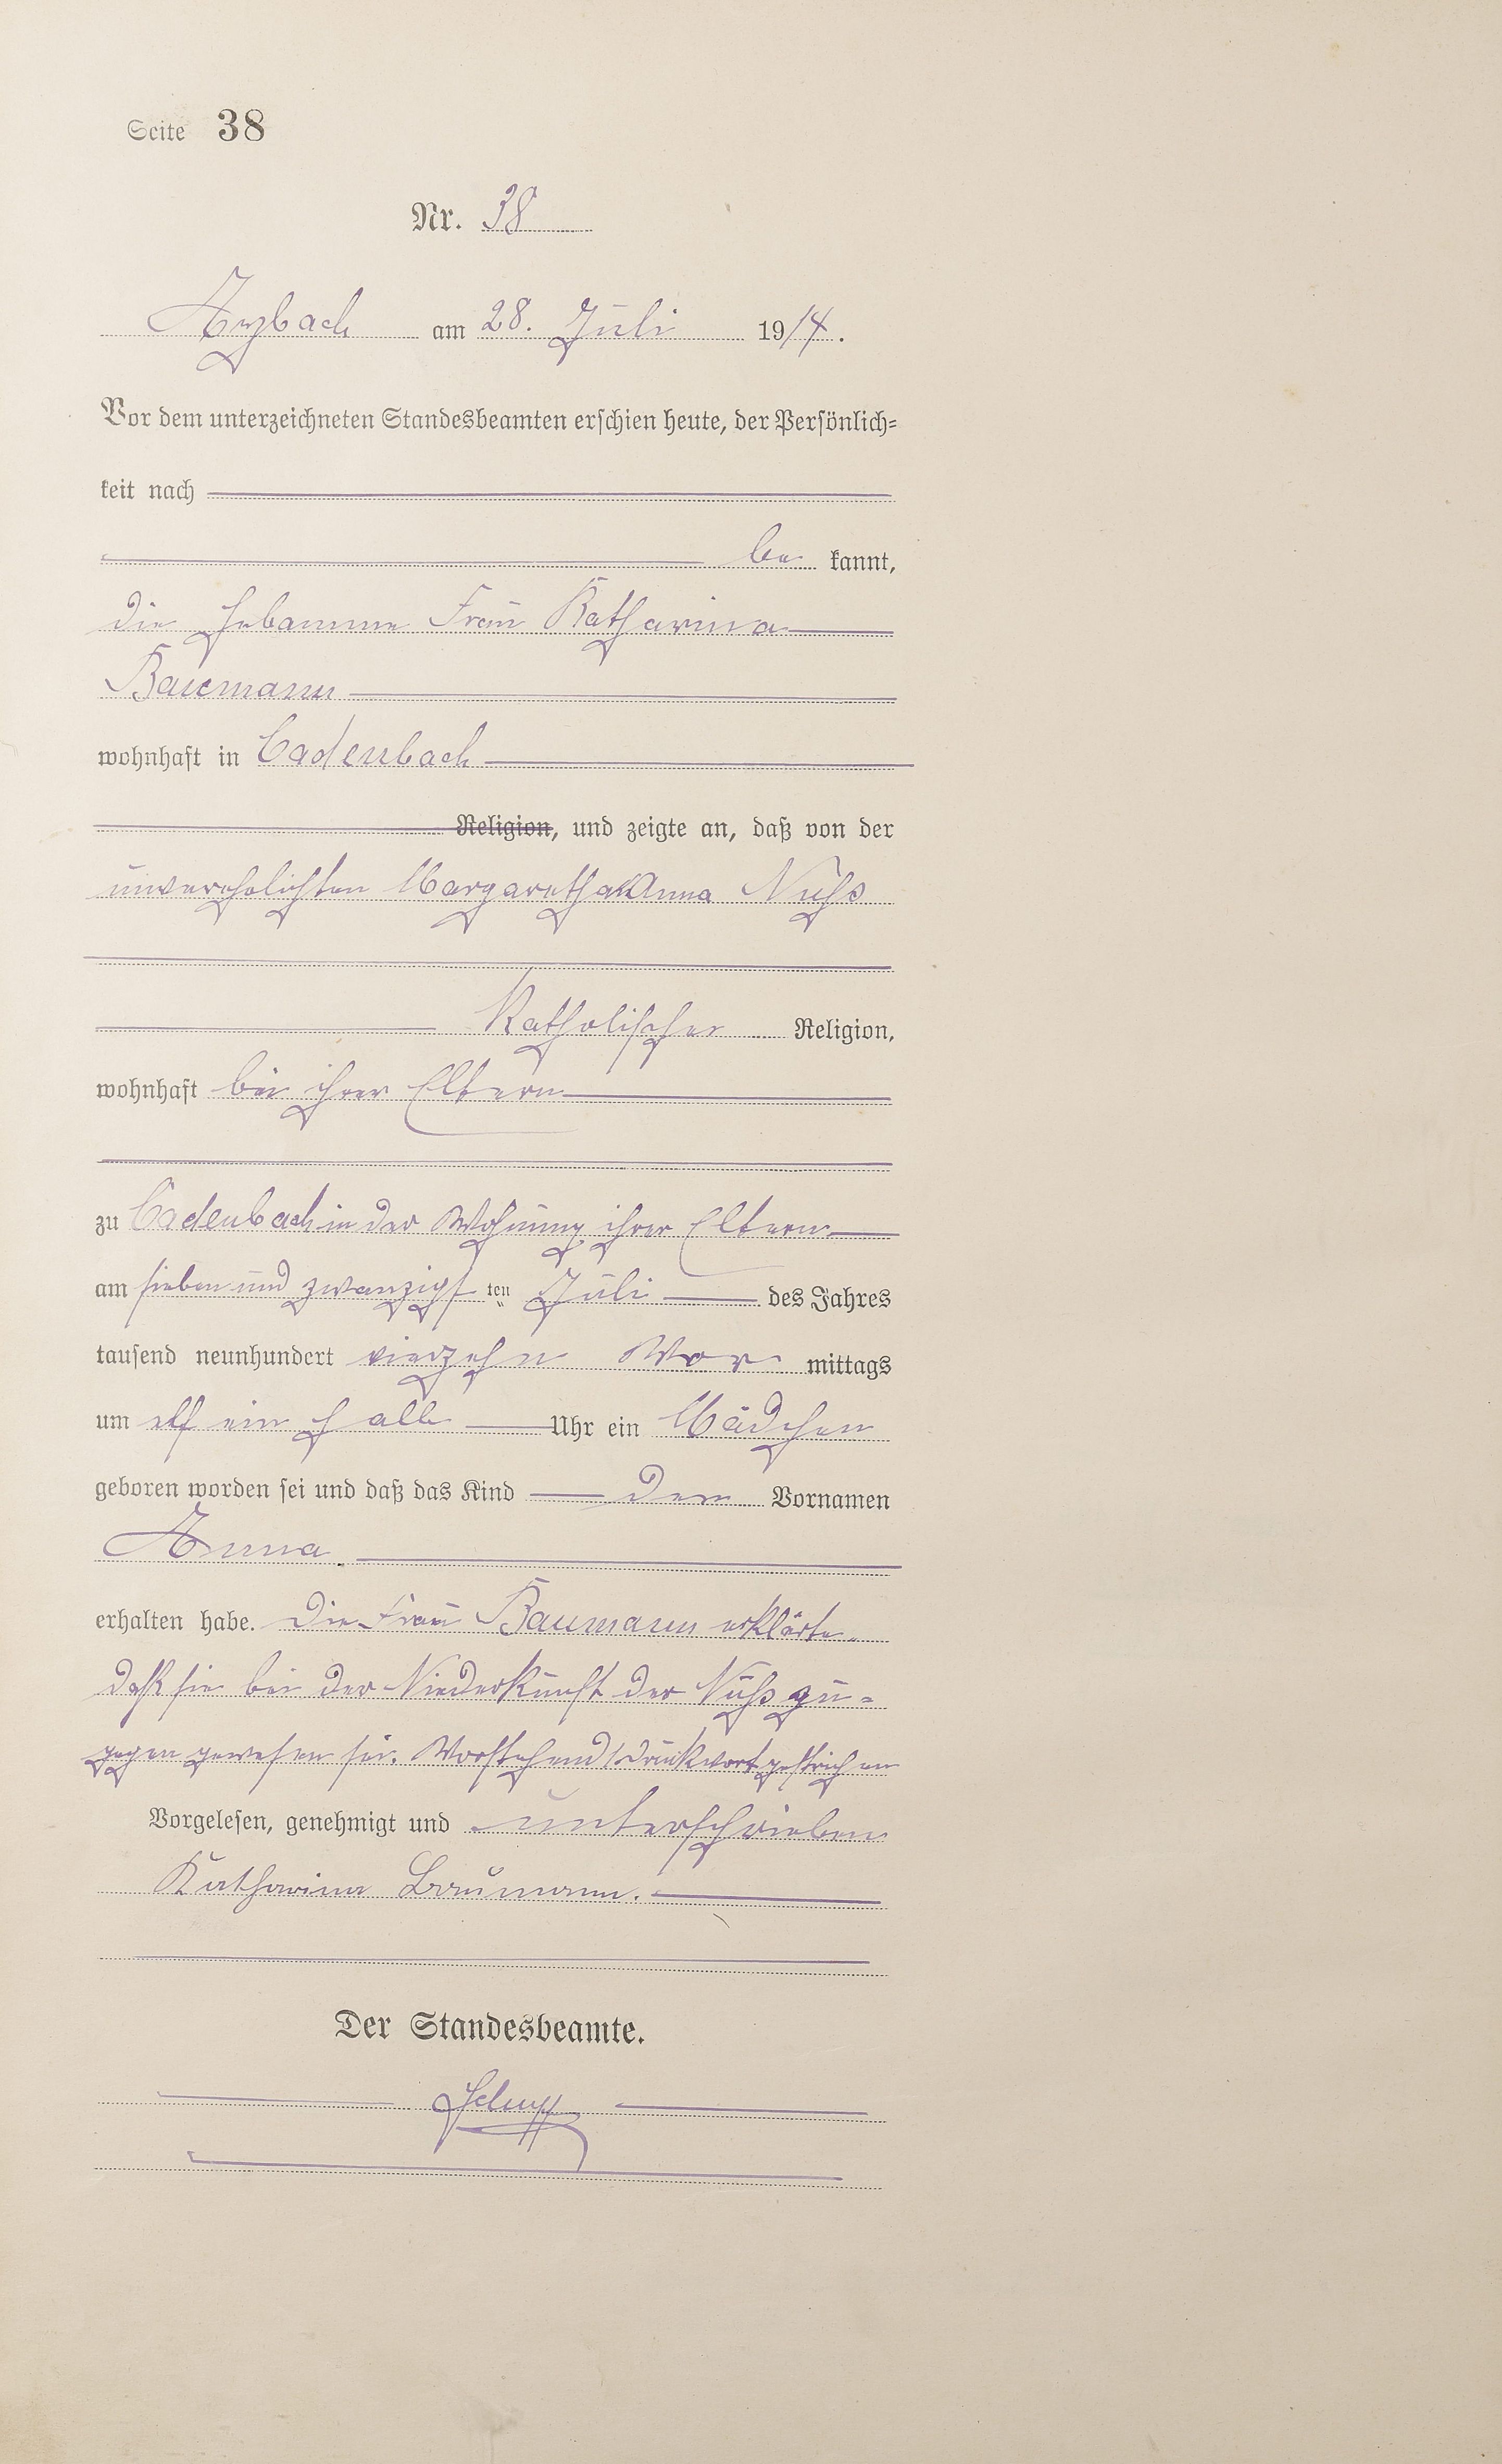 Seite 38
Nr. 38
Arzbach am 28. Juli 1914.
Vor dem unterzeichneten Standesbeamten erschien heute, der Persönlich=
keit nach
be kannt,
die Hebamme Frau Katharina
Baumann
wohnhaft in Cadenbach
Religion, und zeigte an, daß von der
unverehelichten Margaretha Anna Nuhs
Katholischer Religion,
wohnhaft bei ihrer Eltern
zu Cadenbach in der Wohnung ihrer Eltern
am sieben und zwanzigsten Juli des Jahres
tausend neunhundert vierzehn Vor mittags
um elf ein halb Uhr ein Mädchen
geboren worden sei und daß das Kind den Vornamen
Anna
erhalten habe. Die Frau Baumann erklärte
daß sie bei der Niederkunft der Nuhs zu=
gegen gewesen sei. Vorstehend 1 Druckwort gestrichen
Vorgelesen, genehmigt und unterschrieben
Katharina Baumann.
Der Standesbeamte.